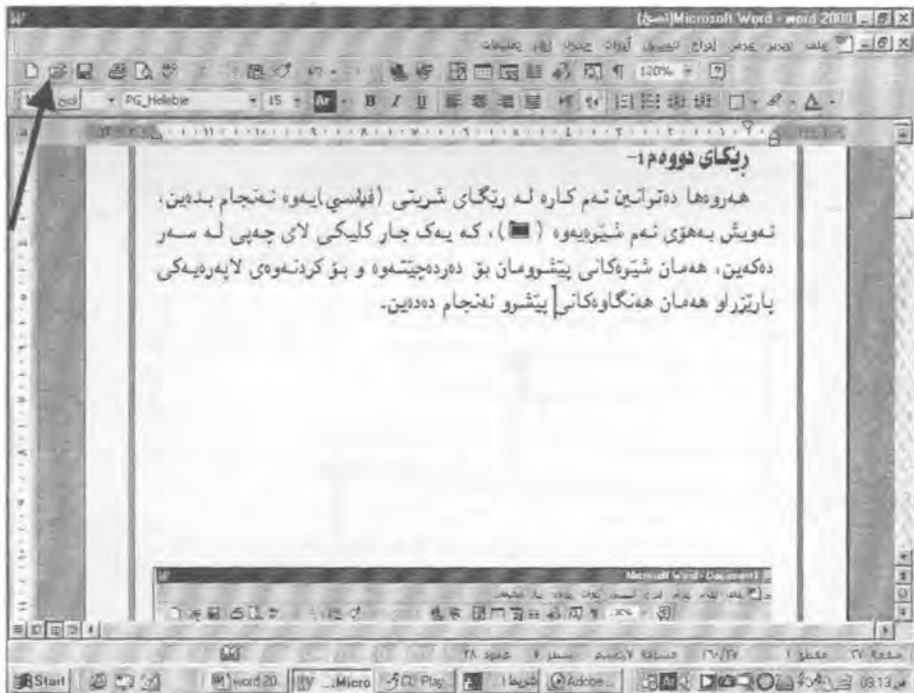 (نسخ)Microsoft Word - word 2000
ملف تحرير عرض إدراج تنسيق أدوات جدول إطار تعليمات
120%
PG_Helebie 15 B I U
ڕێگای دووەم:-
هەروەها دەتوانین ئەم کارە لە ڕێگای شریتی (قیاسي)یەوە ئەنجام بدەین،
ئەویش بەهۆی ئەم شێوەیەوە ( )، کە یەک جار کلیکی لای چەپی لە سەر
دەکەین، هەمان شێوەکانی پێشرومان بۆ دەردەچێتەوە و بۆ کردنەوەی لاپەرەیەکی
پارێزراو هەمان هەنگاوەکانی پێشرو ئەنجام دەدەین.
Microsoft Word - Document1
Start word 20... Micro... CD Play... Adobe... 09:13 ص